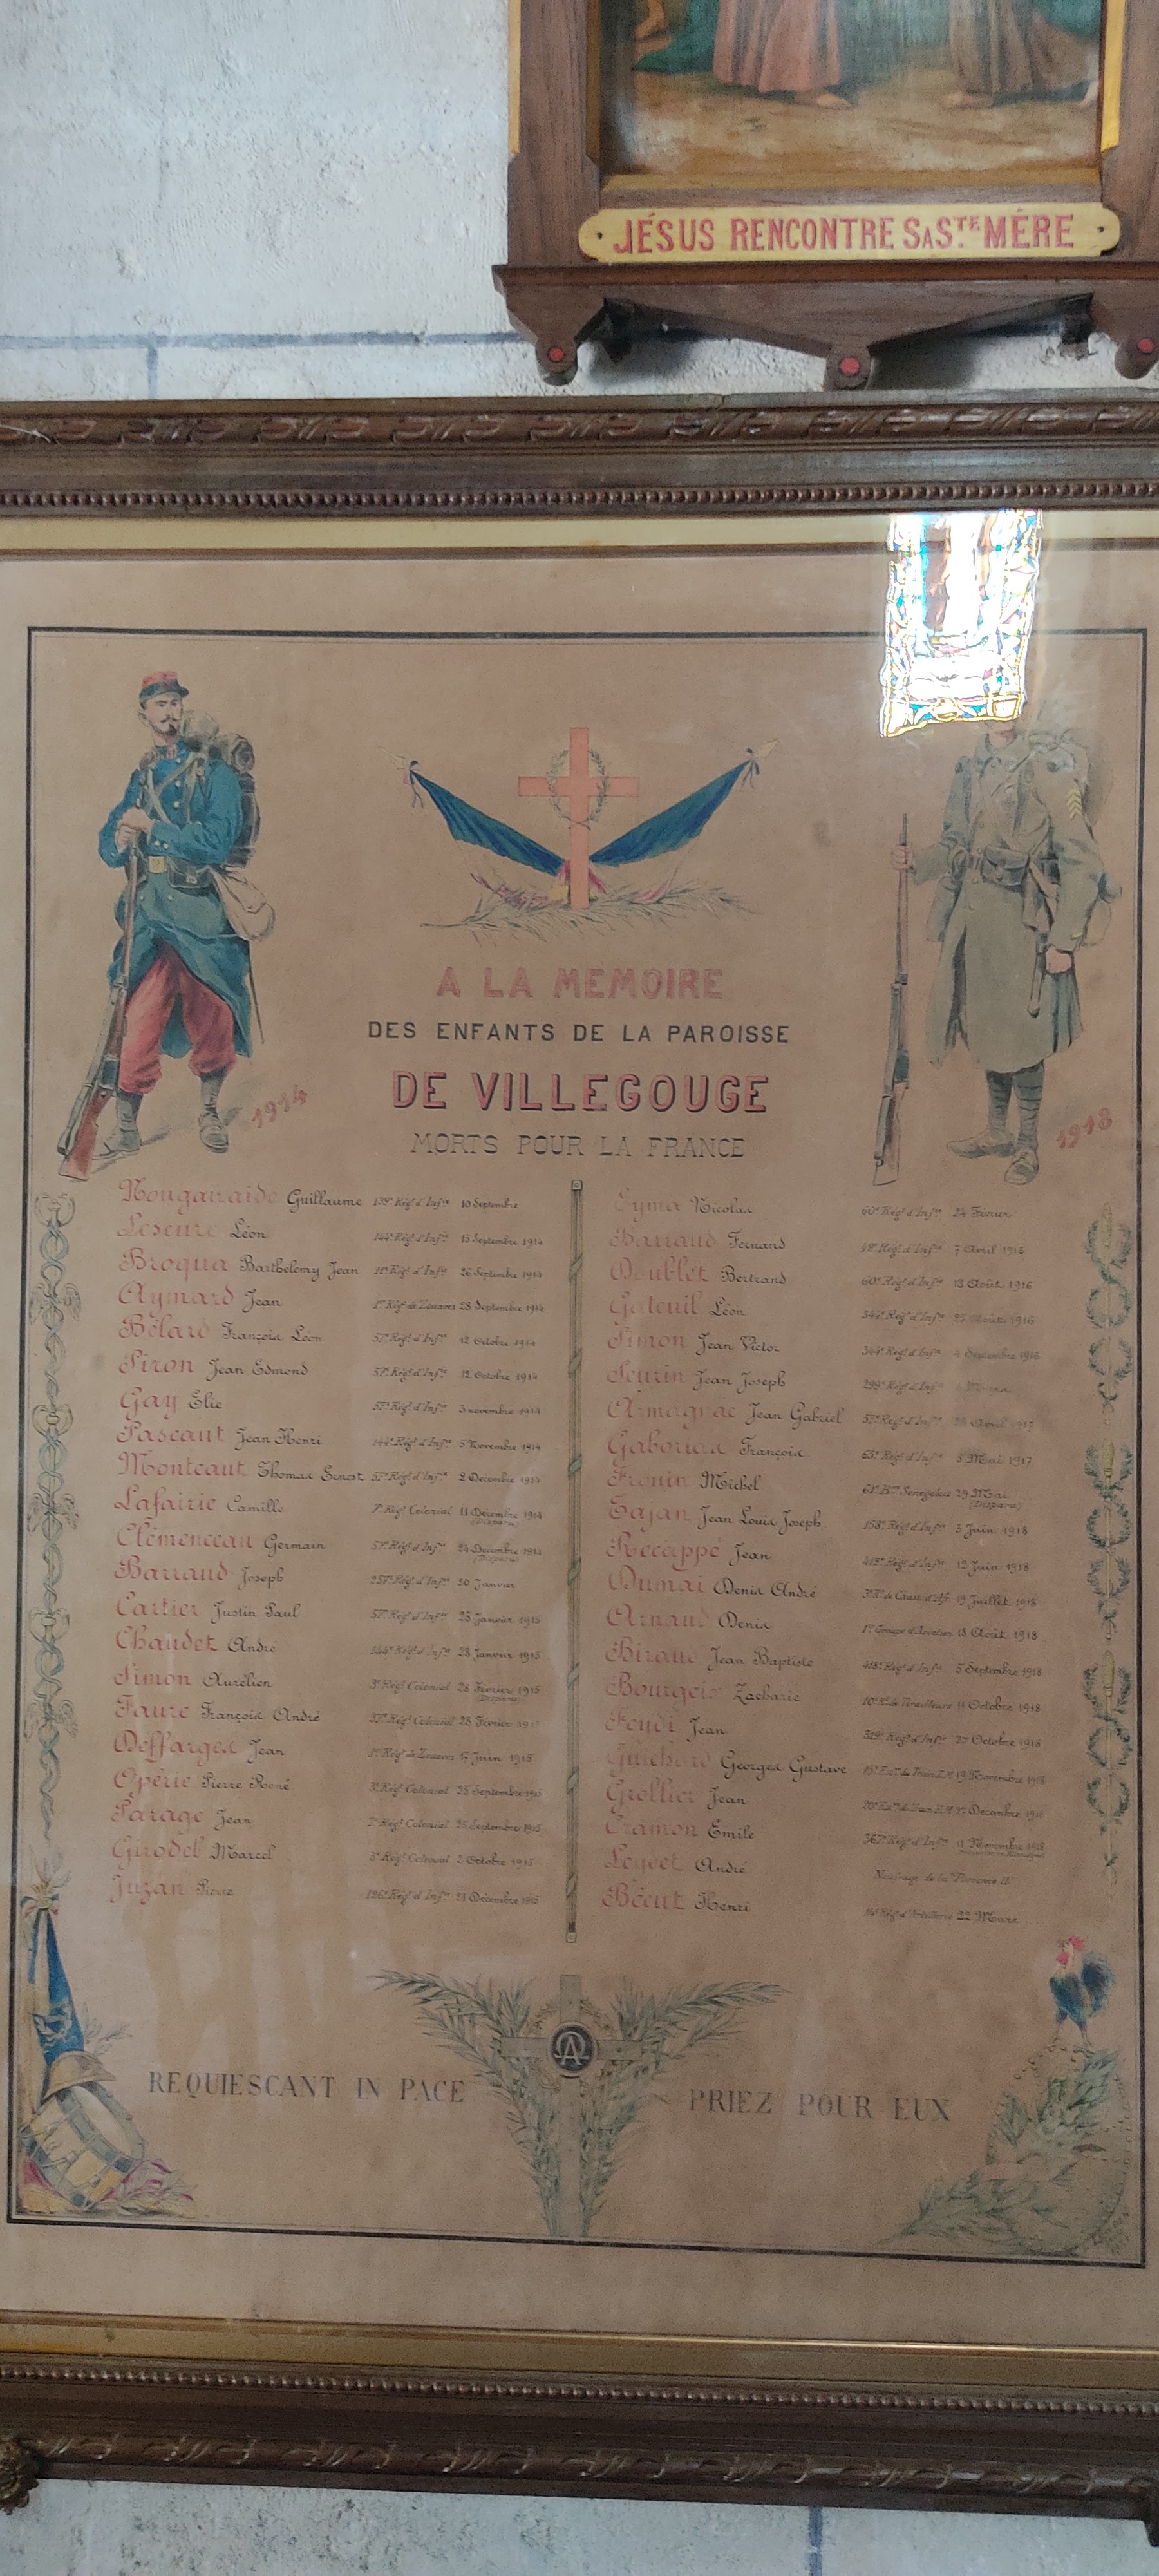 JÉSUS RENCONTRE SA STE MÈRE
A LA MEMOIRE
DES ENFANTS DE LA PAROISSE
DE VILLEGOUGE
MORTS POUR LA FRANCE
1914
1918
Guillaume 10 Septembre
Lescure Léon 144e Régt d'Infie 15 Septembre 1914
Broqua Barthélemy Jean 26 Septembre 1914
Aymard Jean 1er Régt de Zouaves 28 Septembre 1914
Bélard François Léon 57e Régt d'Infie 12 Octobre 1914
Siron Jean Edmond 57e Régt d'Infie 12 Octobre 1914
Gay Élie 57e Régt d'Infie 3 novembre 1914
Pascaut Jean Henri 144e Régt d'Infie 5 Novembre 1914
Monteaut Thomas Ernest 57e Régt d'Infie 2 Décembre 1914
Lafairie Camille 7e Régt Colonial 11 Décembre 1914
(Disparu)
Clémenceau Germain 57e Régt d'Infie 24 Décembre 1914
(Disparu)
Barraud Joseph Régt d'Infie 20 Janvier
Cartier Justin Paul 57e Régt d'Infie 25 Janvier 1915
Chaudet André Régt d'Infie 28 Janvier 1915
Simon Aurélien 3e Régt Colonial 26 Février 1915
(Disparu)
Faure François André 37e Régt Colonial 28 Février
Deffarges Jean 1er Régt de Zouaves 17 Juin 1915
Opérie Pierre René Régt Colonial 25 Septembre 1915
Parage Jean 7e Régt Colonial 25 Septembre 1915
Girodel Marcel Régt Colonial 2 Octobre 1915
Juzan Pierre 126e Régt d'Infie 23 Décembre 1915
Eyma Nicolas 60e Régt d'Infie 24 Février
Barraud Fernand Régt d'Infie 7 Avril 1916
Doublet Bertrand 60e Régt d'Infie 13 Août 1916
Gateuil Léon 344e Régt d'Infie Août 1916
Simon Jean Victor 344e Régt d'Infie 4 Septembre 1916
Seurin Jean Joseph 299e Régt d'Infie
Armagnac Jean Gabriel 57e Régt d'Infie Avril 1917
Gaborias François 63e Régt d'Infie 5 Mai 1917
Fronin Michel 61e Bon Senegalais 29 Mai
(Disparu)
Sajan Jean Louis Joseph 158e Régt d'Infie 3 Juin 1918
Recappé Jean 418e Régt d'Infie 12 Juin 1918
Dumai Denis André 19 Juillet 1918
Arnaud Denis 1er Groupe d'Aviation 13 Août 1918
Biraud Jean Baptiste 418e Régt d'Infie 5 Septembre 1918
Bourgeis Zacharie Tirailleurs 11 Octobre 1918
Feydi Jean 329e Régt d'Infie 27 Octobre 1918
Guichard Georges Gustave 19 Novembre 1918
Grollier Jean Décembre 1918
Cramon Emile 367e Régt d'Infie 11 Novembre 1918
Leydet André Naufrage de la "Provence II"
Béeut Henri 22 Mars
REQUIESCANT IN PACE
PRIEZ POUR EUX